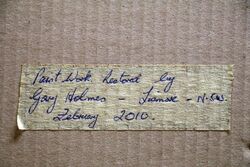 Paint work restored by
Gary Holmes - Lismore - N.S.W.
February 2010.